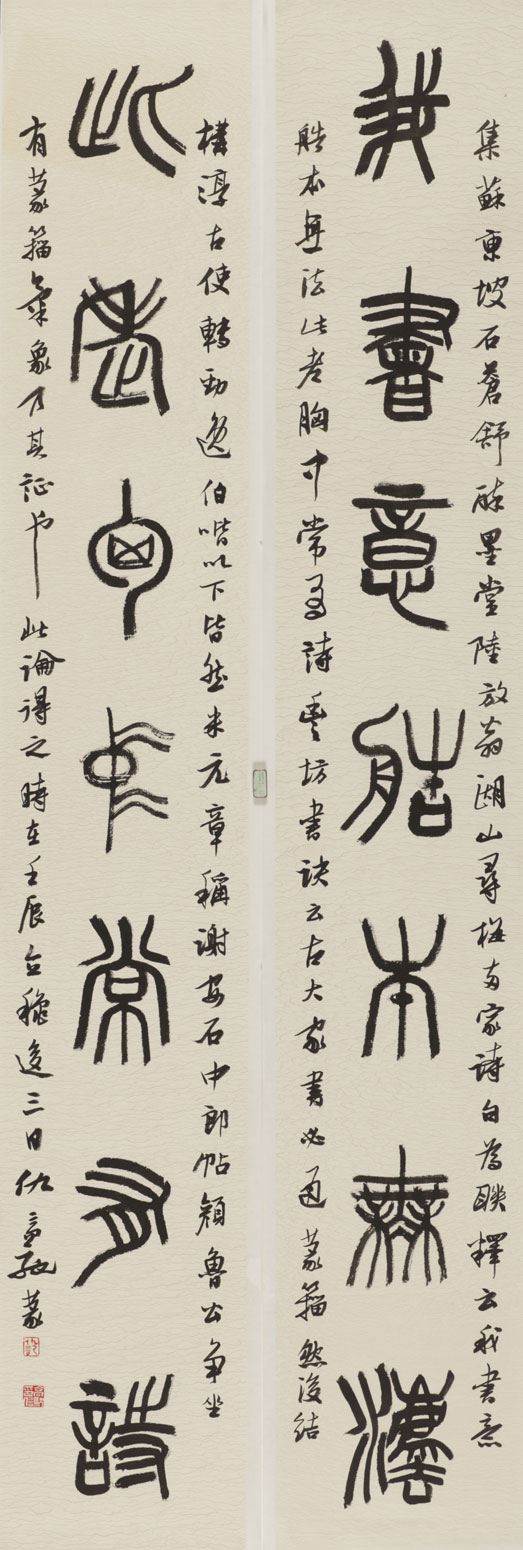 集蘇東坡石蒼舒醉墨堂陸放翁湖山尋梅兩家詩句為聯釋云我書意
我書意艁本無法
艁本無法此老胸中常有詩豐坊書訣云古大家書必通篆籀然後結
構淳古使轉勁逸伯喈以下皆然米元章稱謝安石中郎帖顏魯公爭坐
此老胸中常有詩
有篆籀氣象乃其証也此論得之時在壬辰立穐後三日仇高馳篆